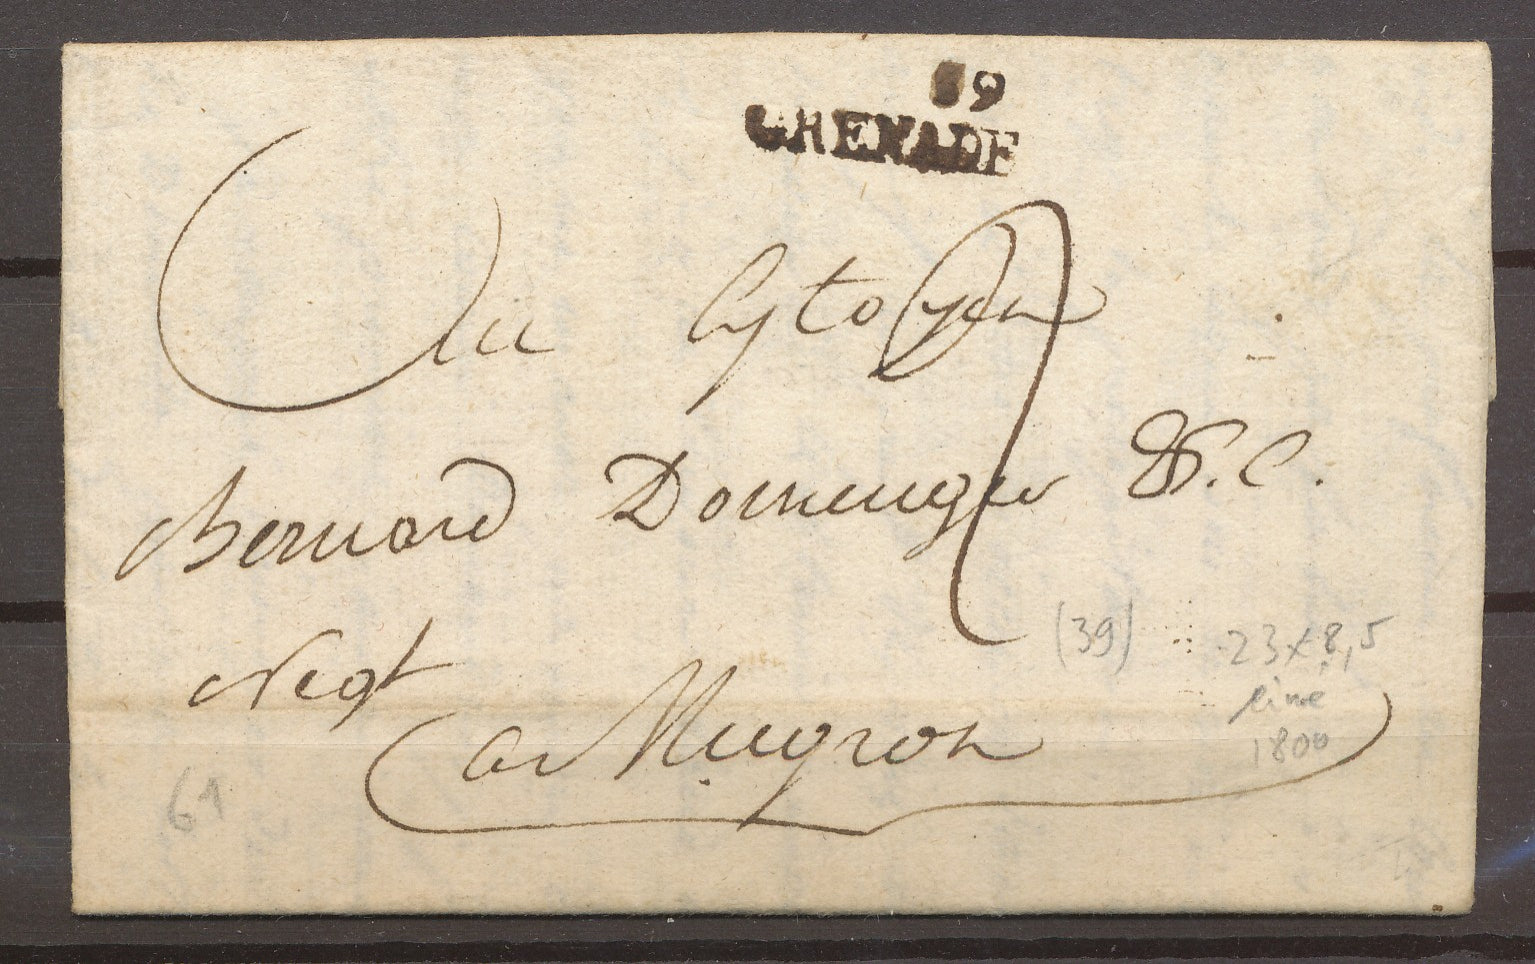 39
GRENADE
Au Cytoyen
2
Bernard Domenger & C.
Negt
a Mugron
(39)
23 x 8,5
line
1800
61